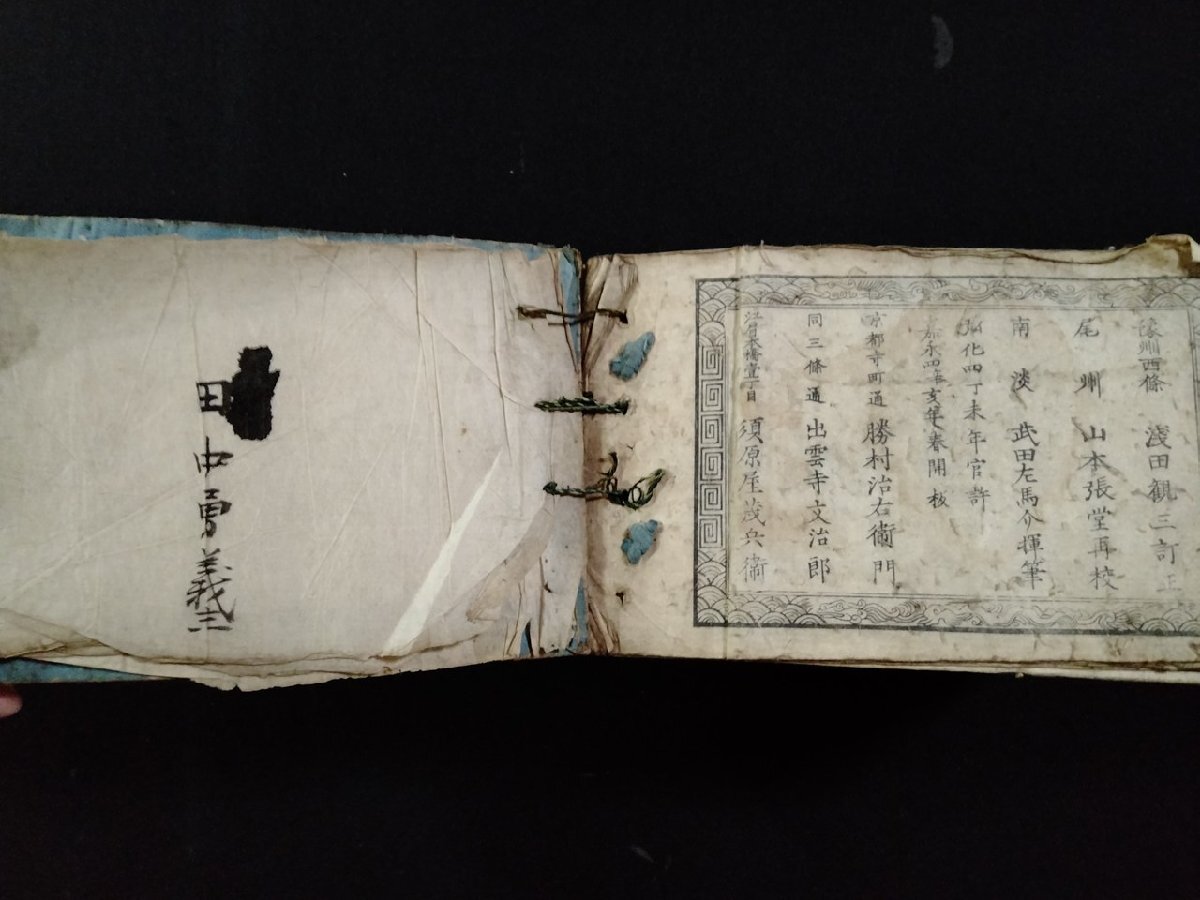 豫州西條 淺田觀三訂正
尾州 山本張堂再校
南淡 武田左馬介揮筆
弘化四丁未年官許
嘉永四辛亥年春開板
京都寺町通 勝村治右衞門
同三條通 出雲寺文治郎
江戸日本橋壹丁目 須原屋茂兵衞
田中勇義